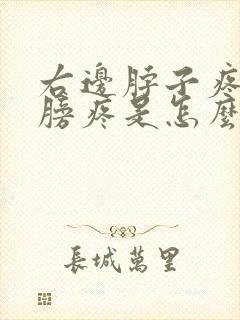 右邊脖子疼
膀疼是怎麼
長城萬里